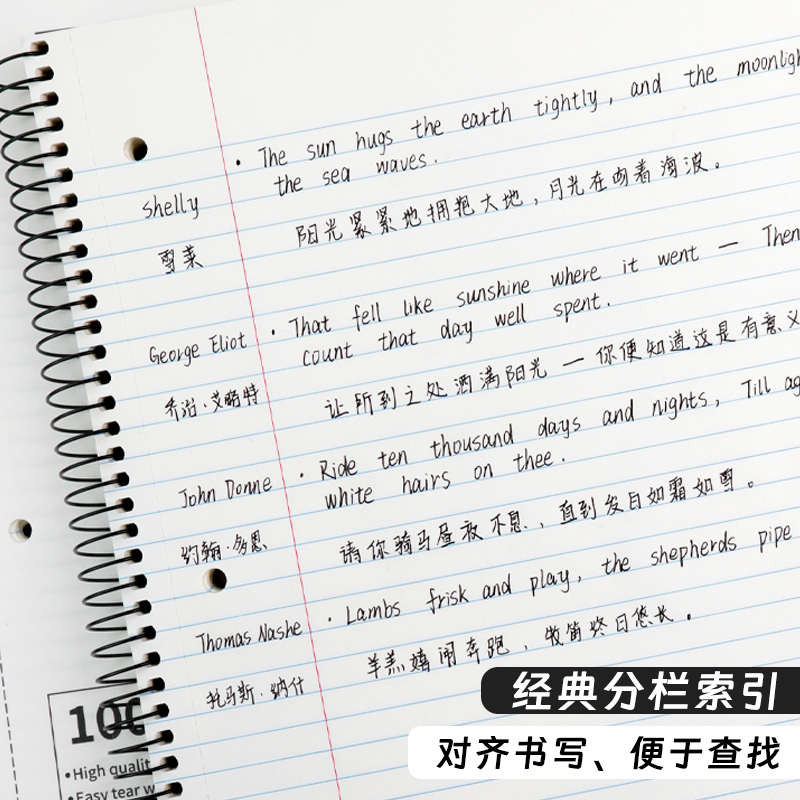 • The sun hugs the earth tightly, and the moonligh
the sea waves.
Shelly
阳光紧紧地拥抱大地,月光在吻着海波。
雪莱
• That fell like sunshine where it went — Then
George Eliot
count that day well spent.
让所到之处洒满阳光 — 你便知道这是有意义
乔治·艾略特
• Ride ten thousand days and nights, Till ag
John Donne
white hairs on thee.
请你骑马昼夜不息,直到发白如霜如雪。
约翰·多恩
• Lambs frisk and play, the shepherds pipe
Thomas Nashe
羊羔嬉闹奔跑,牧笛终日悠长。
托马斯·纳什
100
• High qualit
• Easy tear w
经典分栏索引
对齐书写、便于查找